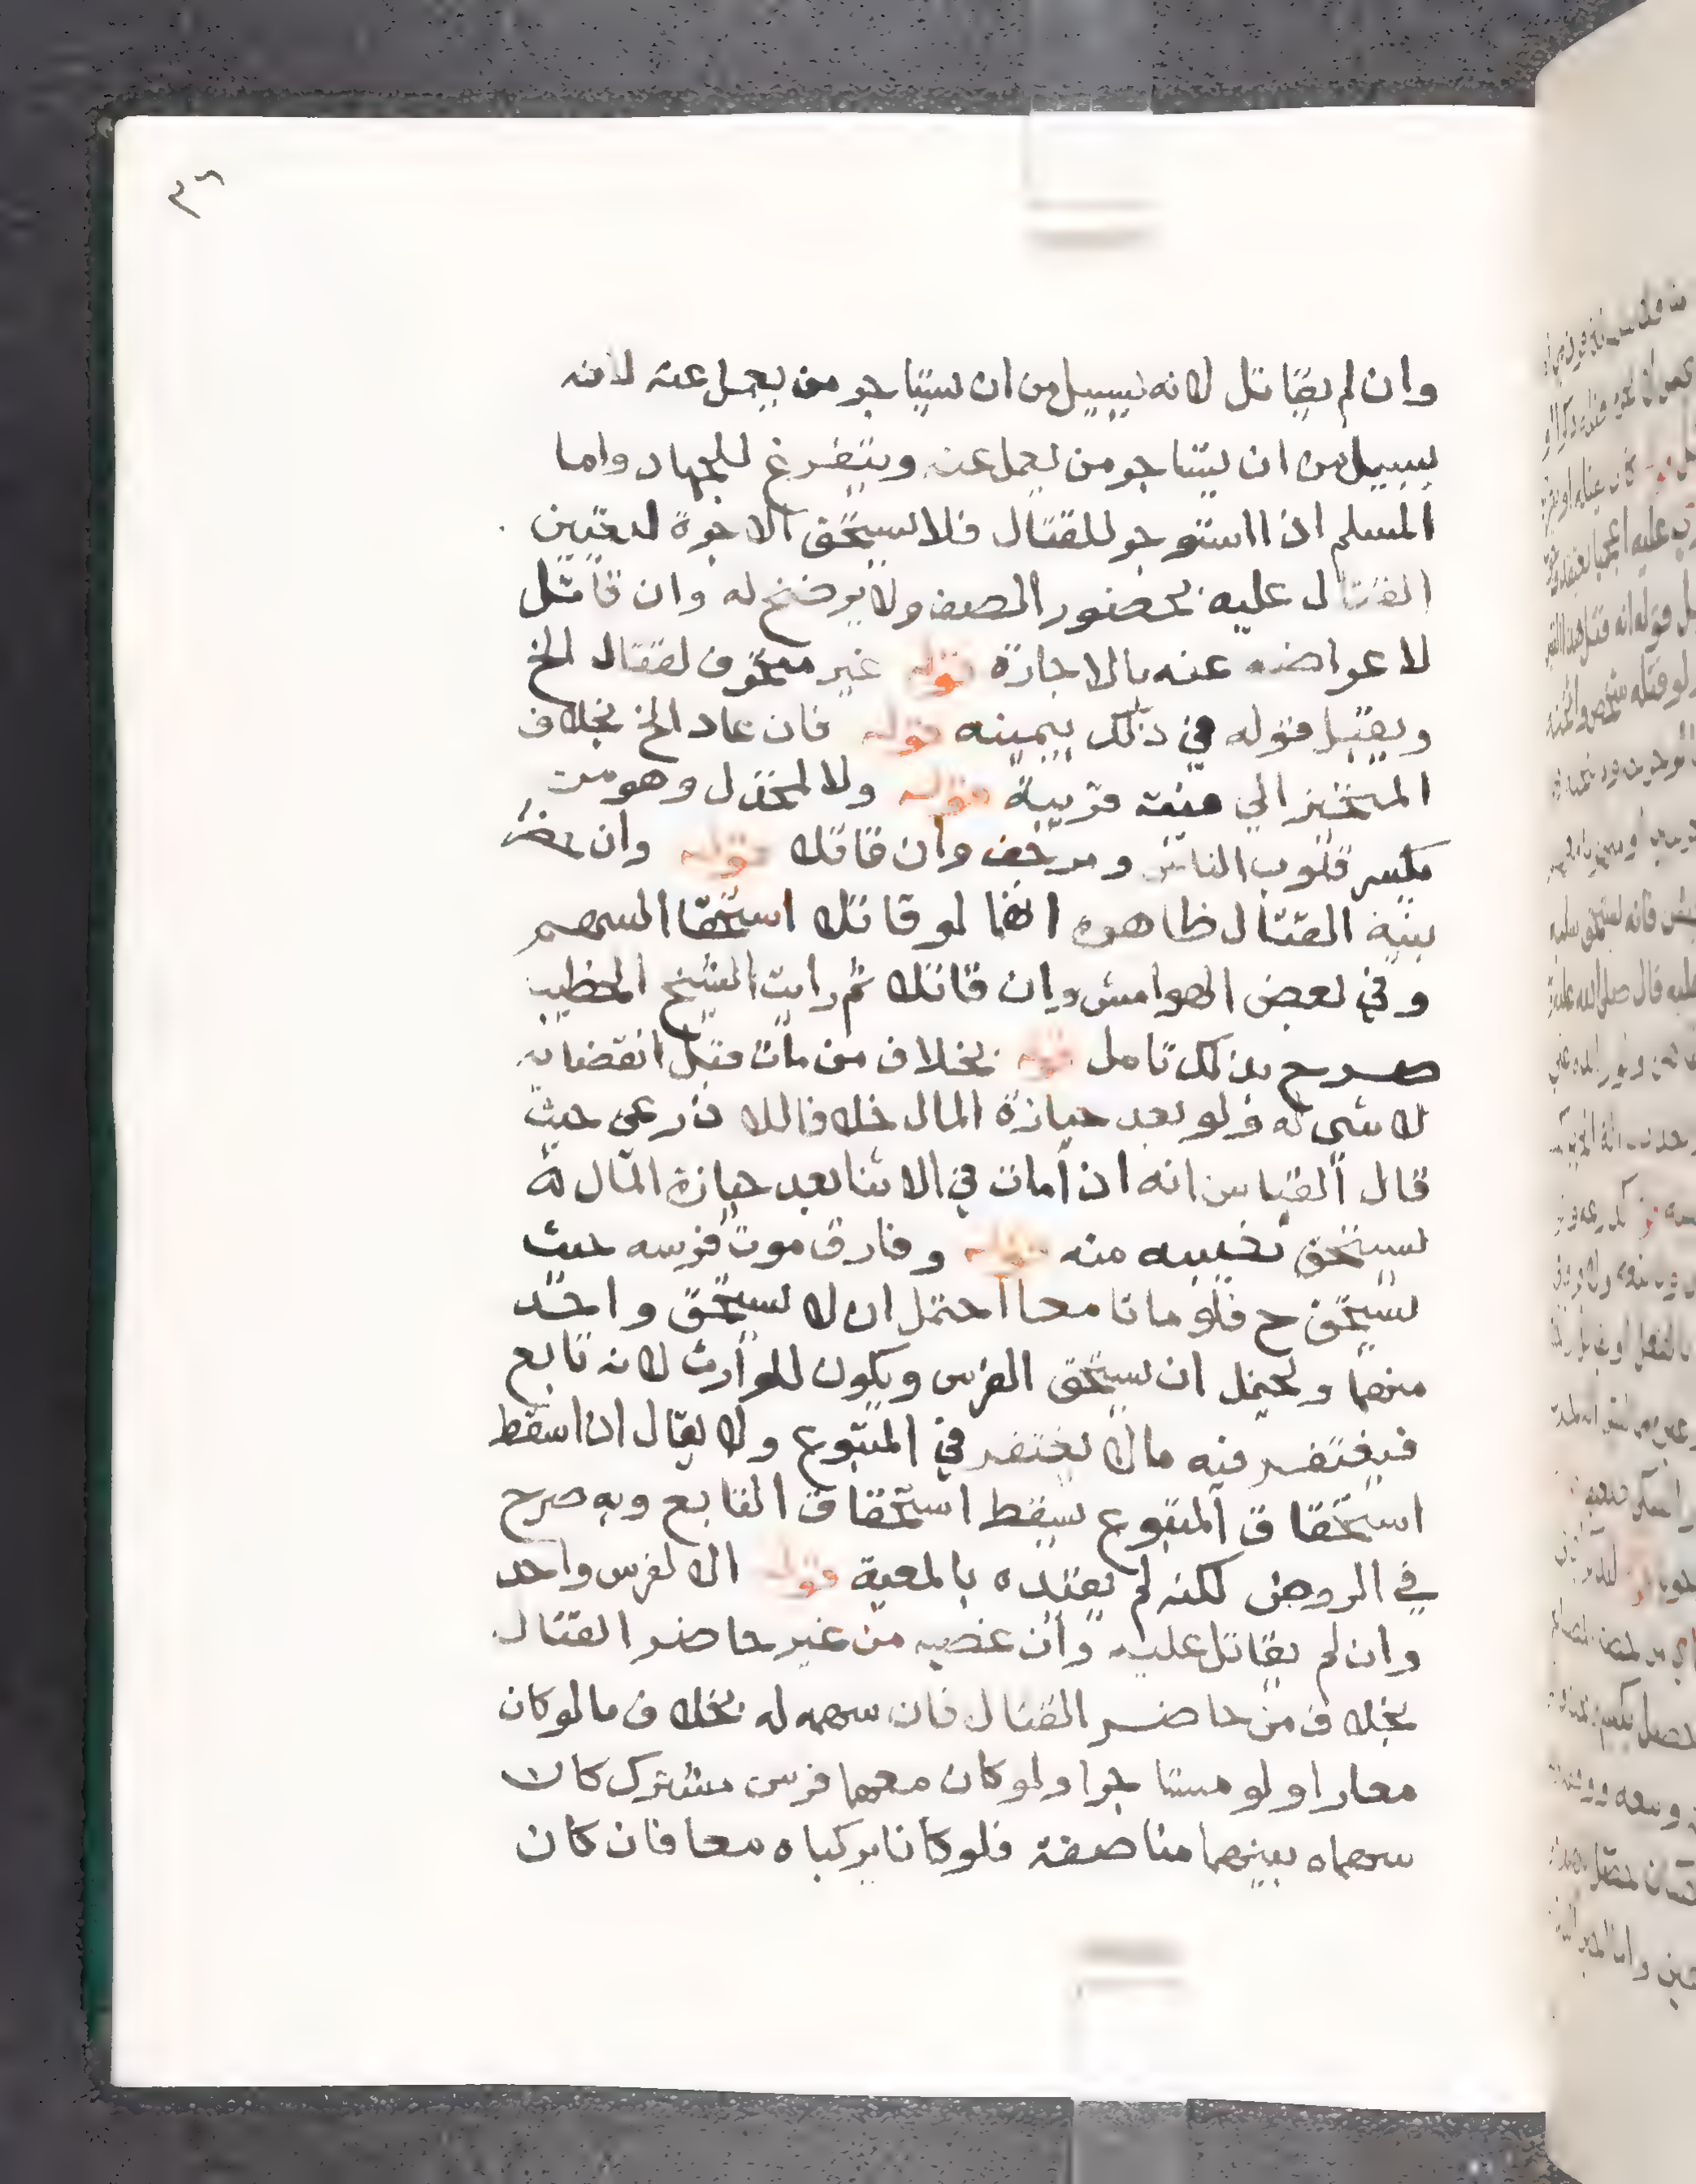 ٣٦
وان لم يقاتل لانه بسبيل من ان يستاجر من يعمل عنه لانه
بسبيل من ان يستاجر من يعمل عنه ويتفرغ للجهاد واما
المسلم اذا استوجر للقتال فلا يستحق الاجرة لتعين
القتال عليه بحضور الصف ولا يرضخ له وان قاتل
لا عراضه عنه بالاجارة قوله غير متحرف لقتال الخ
ويقبل قوله في ذلك بيمينه قوله فان عاد الخ بخلاف
المتحيز الي فئة قريبة قوله ولا لمخذل وهو من
يكسر قلوب الناس ومرجف وان قاتلا قوله وان حضر
بنية القتال ظاهره انهما لو قاتلا استحقا السهم
وفي بعض الهوامش وان قاتلا ثم رايت الشيخ الخطيب
صرح بذلك تامل قوله بخلاف من مات قبل انقضائه
لا شي له ولو بعد حيازة المال خلافا للاذرعي حيث
قال القياس انه اذا مات في الاثنا بعد حيازة المال انه
يستحق نصيبه منه قوله وفارق موت فرسه حيث
يستحق ح فلو ماتا معا احتمل ان لا يستحق واحد
منهما ويحتمل ان يستحق الفرس ويكون للوارث لانه تابع
فيغتفر فيه ما لا يغتفر في المتبوع ولا يقال اذا سقط
استحقاق المتبوع سقط استحقاق التابع وبه صرح
في الروض لكنه لم يقيده بالمعية قوله الا لفرس واحد
وان لم يقاتل عليه وان غصبه من غير حاضر القتال
بخلاف من حاضر القتال فان سهمه له بخلاف ما لو كان
معارا ولو مستاجرا ولو كان معهما فرس مشترك كان
سهماه بينهما مناصفة فلو كانا يركباه معا فان كان